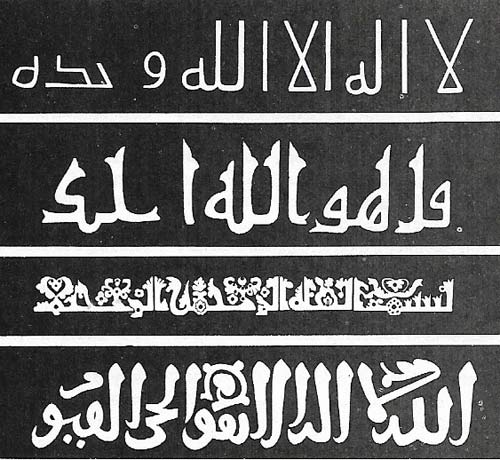 لا اله الا الله وحده
قل هو الله احد
بسم الله الرحمن الرحيم
الله لا اله الا هو الحى القيو